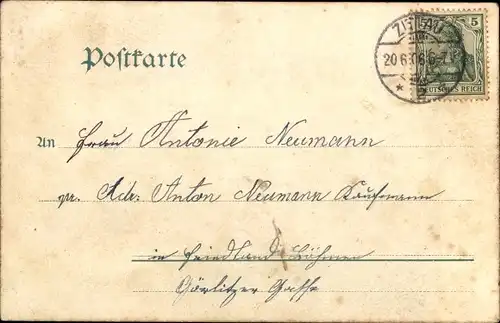 Postkarte
ZITTAU
20.6.06. 6-7
5
DEUTSCHES REICH
An Frau Antonie Neumann
pr. Adr: Anton Neumann Kaufmann
in Friedland Böhmen
Görlitzer Gasse